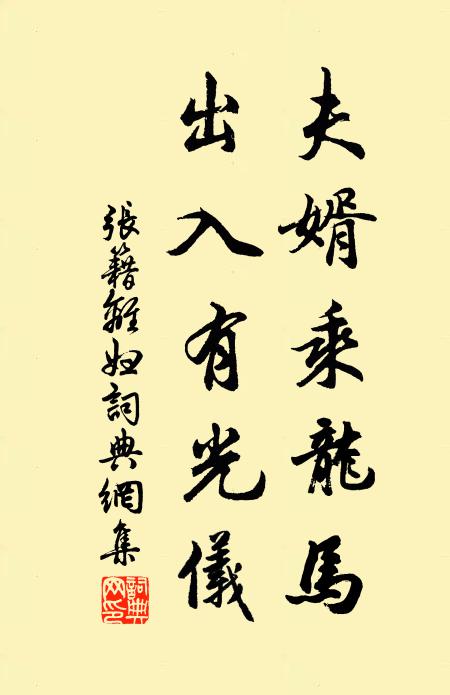 夫婿乘龍馬
出入有光儀
張籍離婦詞典網集
詞典网印